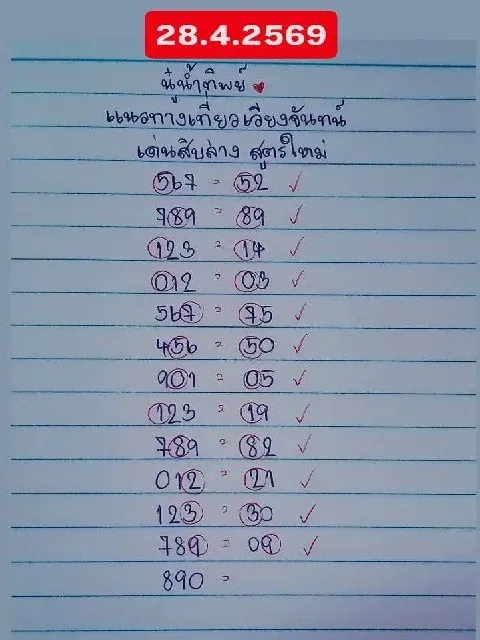 28.4.2569
นู๋น้ำทิพย์
แนวทางเที่ยวเวียงจันทน์
เด่นสิบล่าง สูตรใหม่
567 = 52 ✓
789 = 89 ✓
123 = 14 ✓
012 = 03 ✓
567 = 75 ✓
456 = 50 ✓
901 = 05 ✓
123 = 19 ✓
789 = 82 ✓
012 = 21 ✓
123 = 30 ✓
789 = 09 ✓
890 =